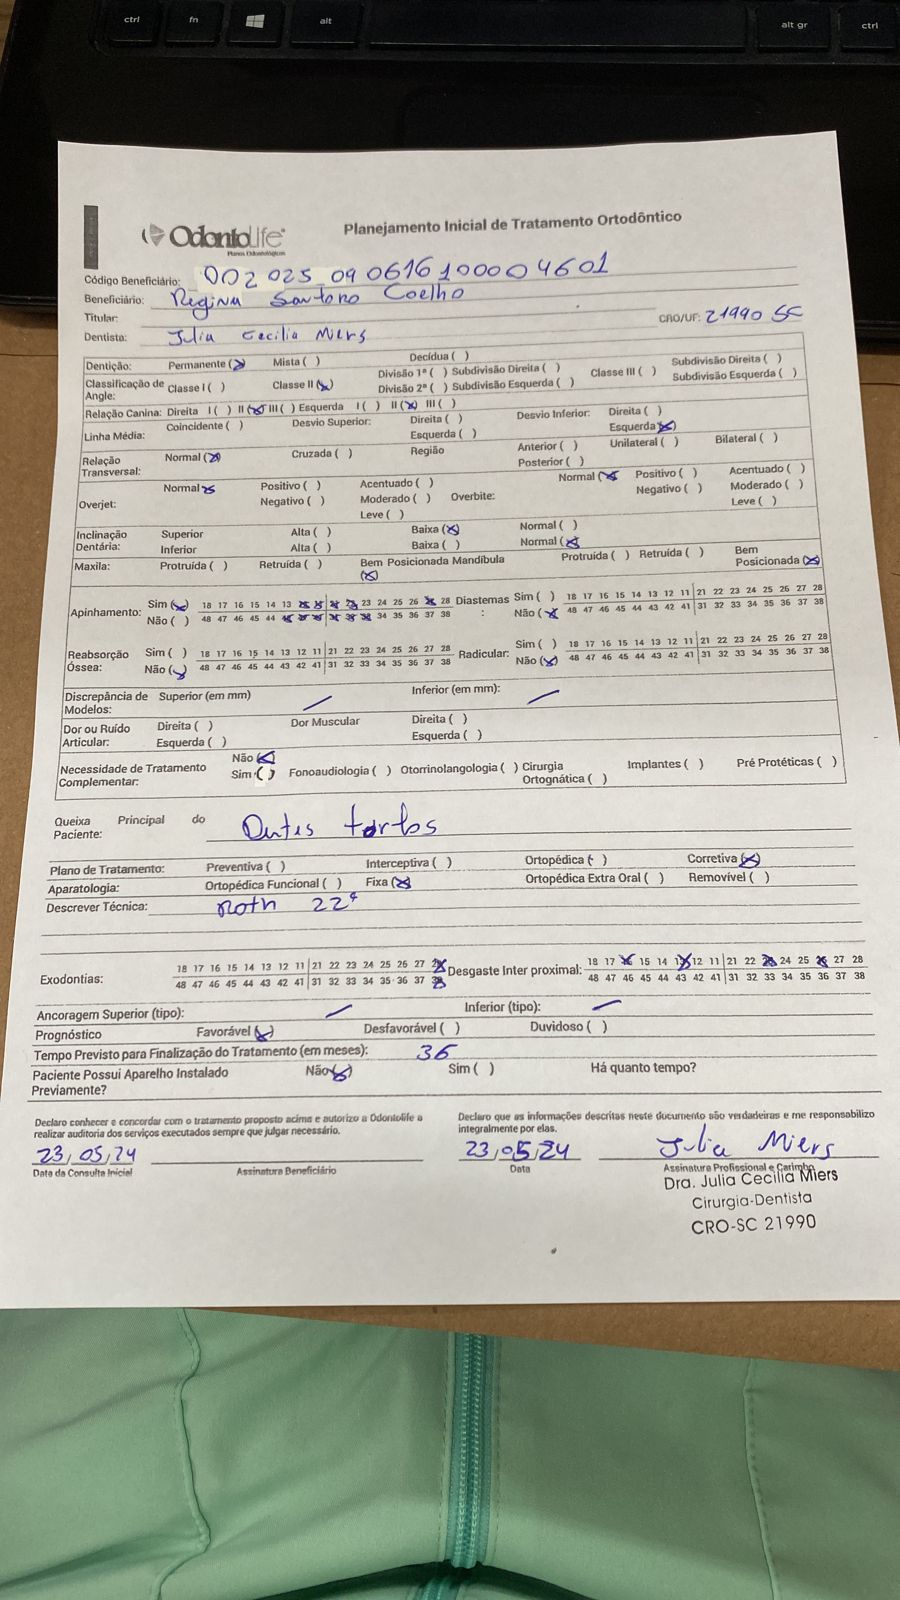 ctrl fn alt alt gr ctrl
Odontolife Planos Odontológicos
Planejamento Inicial de Tratamento Ortodôntico
Código Beneficiário: 002 025 09 0616 10000 4601
Beneficiário: Regina Santoro Coelho
Titular:
Dentista: Julia Cecilia Miers CRO/UF: 21990 SC
Dentição: Permanente (x) Mista ( ) Decídua ( )
Classificação de Angle: Classe I ( ) Classe II (x) Divisão 1ª ( ) Subdivisão Direita ( ) Classe III ( ) Subdivisão Direita ( )
Divisão 2ª ( ) Subdivisão Esquerda ( ) Subdivisão Esquerda ( )
Relação Canina: Direita I ( ) II (x) III ( ) Esquerda I ( ) II (x) III ( )
Linha Média: Coincidente ( ) Desvio Superior: Direita ( ) Desvio Inferior: Direita ( )
Esquerda ( ) Esquerda (x)
Relação Transversal: Normal (x) Cruzada ( ) Região Anterior ( ) Unilateral ( ) Bilateral ( )
Posterior ( )
Overjet: Normal x Positivo ( ) Acentuado ( ) Overbite: Normal (x) Positivo ( ) Acentuado ( )
Negativo ( ) Moderado ( ) Negativo ( ) Moderado ( )
Leve ( ) Leve ( )
Inclinação Dentária: Superior Alta ( ) Baixa (x) Normal ( )
Inferior Alta ( ) Baixa ( ) Normal (x)
Maxila: Protruída ( ) Retruída ( ) Bem Posicionada (x) Mandíbula Protruída ( ) Retruída ( ) Bem Posicionada (x)
Apinhamento: Sim (x) 18 17 16 15 14 13 23 24 25 26 28 Diastemas : Sim ( ) 18 17 16 15 14 13 12 11 21 22 23 24 25 26 27 28
Não ( ) 48 47 46 45 44 34 35 36 37 38 Não (x) 48 47 46 45 44 43 42 41 31 32 33 34 35 36 37 38
Reabsorção Óssea: Sim ( ) 18 17 16 15 14 13 12 11 21 22 23 24 25 26 27 28 Radicular: Sim ( ) 18 17 16 15 14 13 12 11 21 22 23 24 25 26 27 28
Não (x) 48 47 46 45 44 43 42 41 31 32 33 34 35 36 37 38 Não (x) 48 47 46 45 44 43 42 41 31 32 33 34 35 36 37 38
Discrepância de Modelos: Superior (em mm) / Inferior (em mm): /
Dor ou Ruído Articular: Direita ( ) Dor Muscular Direita ( )
Esquerda ( ) Esquerda ( )
Necessidade de Tratamento Complementar: Não (x)
Sim ( ) Fonoaudiologia ( ) Otorrinolangologia ( ) Cirurgia Ortognática ( ) Implantes ( ) Pré Protéticas ( )
Queixa Principal do Paciente: Dentes tortos
Plano de Tratamento: Preventiva ( ) Interceptiva ( ) Ortopédica ( ) Corretiva (x)
Aparatologia: Ortopédica Funcional ( ) Fixa (x) Ortopédica Extra Oral ( ) Removível ( )
Descrever Técnica: Roth 22"
Exodontias: 18 17 16 15 14 13 12 11 21 22 23 24 25 26 27 28 Desgaste Inter proximal: 18 17 16 15 14 13 12 11 21 22 23 24 25 26 27 28
48 47 46 45 44 43 42 41 31 32 33 34 35 36 37 38 48 47 46 45 44 43 42 41 31 32 33 34 35 36 37 38
Ancoragem Superior (tipo): / Inferior (tipo): /
Prognóstico Favorável (x) Desfavorável ( ) Duvidoso ( )
Tempo Previsto para Finalização do Tratamento (em meses): 36
Paciente Possui Aparelho Instalado Previamente? Não (x) Sim ( ) Há quanto tempo?
Declaro conhecer e concordar com o tratamento proposto acima e autorizo a Odontolife a
realizar auditoria dos serviços executados sempre que julgar necessário.
Declaro que as informações descritas neste documento são verdadeiras e me responsabilizo
integralmente por elas.
23/05/24 23/05/24 Julia Miers
Data da Consulta Inicial Assinatura Beneficiário Data Assinatura Profissional e Carimbo
Dra. Julia Cecilia Miers
Cirurgia-Dentista
CRO-SC 21990